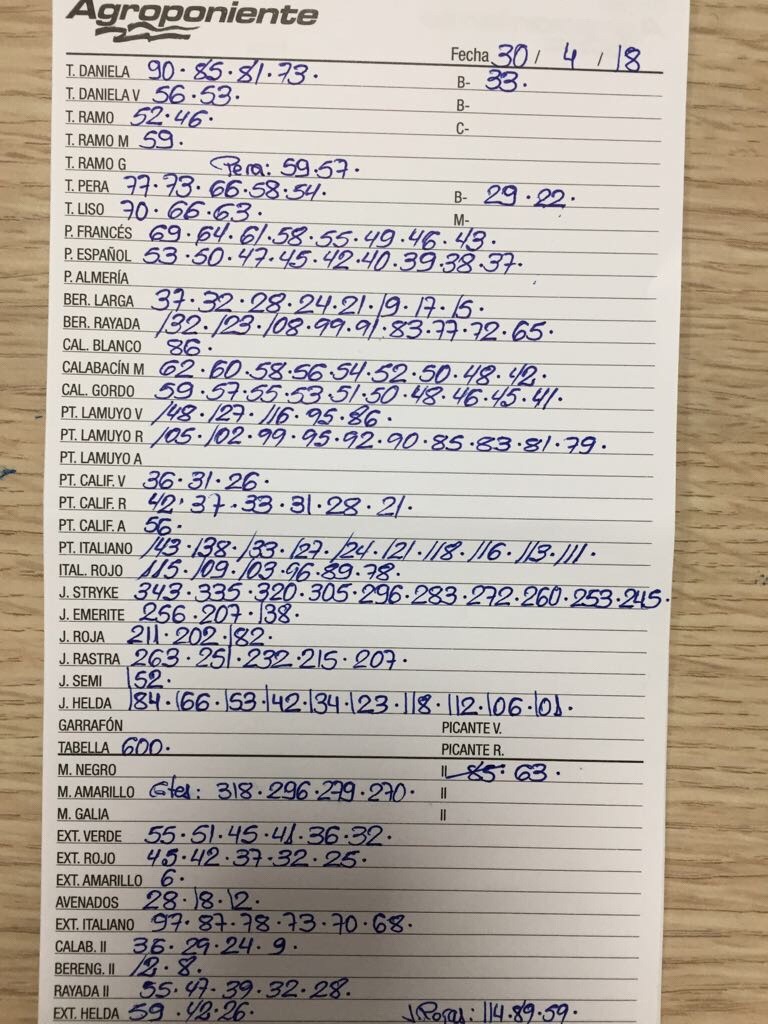 Agroponiente
Fecha 30 / 4 / 18
T. DANIELA 90·85·81·73· B- 33·
T. DANIELA V 56·53· B-
T. RAMO 52·46· C-
T. RAMO M 59·
T. RAMO G Pera: 59·57·
T. PERA 77·73·66·58·54· B- 29·22·
T. LISO 70·66·63· M-
P. FRANCÉS 69·64·61·58·55·49·46·43·
P. ESPAÑOL 53·50·47·45·42·40·39·38·37·
P. ALMERÍA
BER. LARGA 37·32·28·24·21·19·17·15·
BER. RAYADA 132·123·108·99·91·83·77·72·65·
CAL. BLANCO 86·
CALABACÍN M 62·60·58·56·54·52·50·48·42·
CAL. GORDO 59·57·55·53·51·50·48·46·45·41·
PT. LAMUYO V 148·127·116·95·86·
PT. LAMUYO R 105·102·99·95·92·90·85·83·81·79·
PT. LAMUYO A
PT. CALIF. V 36·31·26·
PT. CALIF. R 42·37·33·31·28·21·
PT. CALIF. A 56·
PT. ITALIANO 143·138·133·127·124·121·118·116·113·111·
ITAL. ROJO 115·109·103·96·89·78·
J. STRYKE 343·335·320·305·296·283·272·260·253·245·
J. EMERITE 256·207·138·
J. ROJA 211·202·182·
J. RASTRA 263·251·232·215·207·
J. SEMI 152·
J. HELDA 184·166·153·142·134·123·118·112·106·101·
GARRAFÓN PICANTE V.
TABELLA 600· PICANTE R.
M. NEGRO II 85· 63·
M. AMARILLO Gtes: 318·296·279·270· II
M. GALIA II
EXT. VERDE 55·51·45·41·36·32·
EXT. ROJO 45·42·37·32·25·
EXT. AMARILLO 6·
AVENADOS 28·18·12·
EXT. ITALIANO 97·87·78·73·70·68·
CALAB. II 36·29·24·9·
BERENG. II 12·8·
RAYADA II 55·47·39·32·28·
EXT. HELDA 59·42·26· J Rojas: 114·89·59·